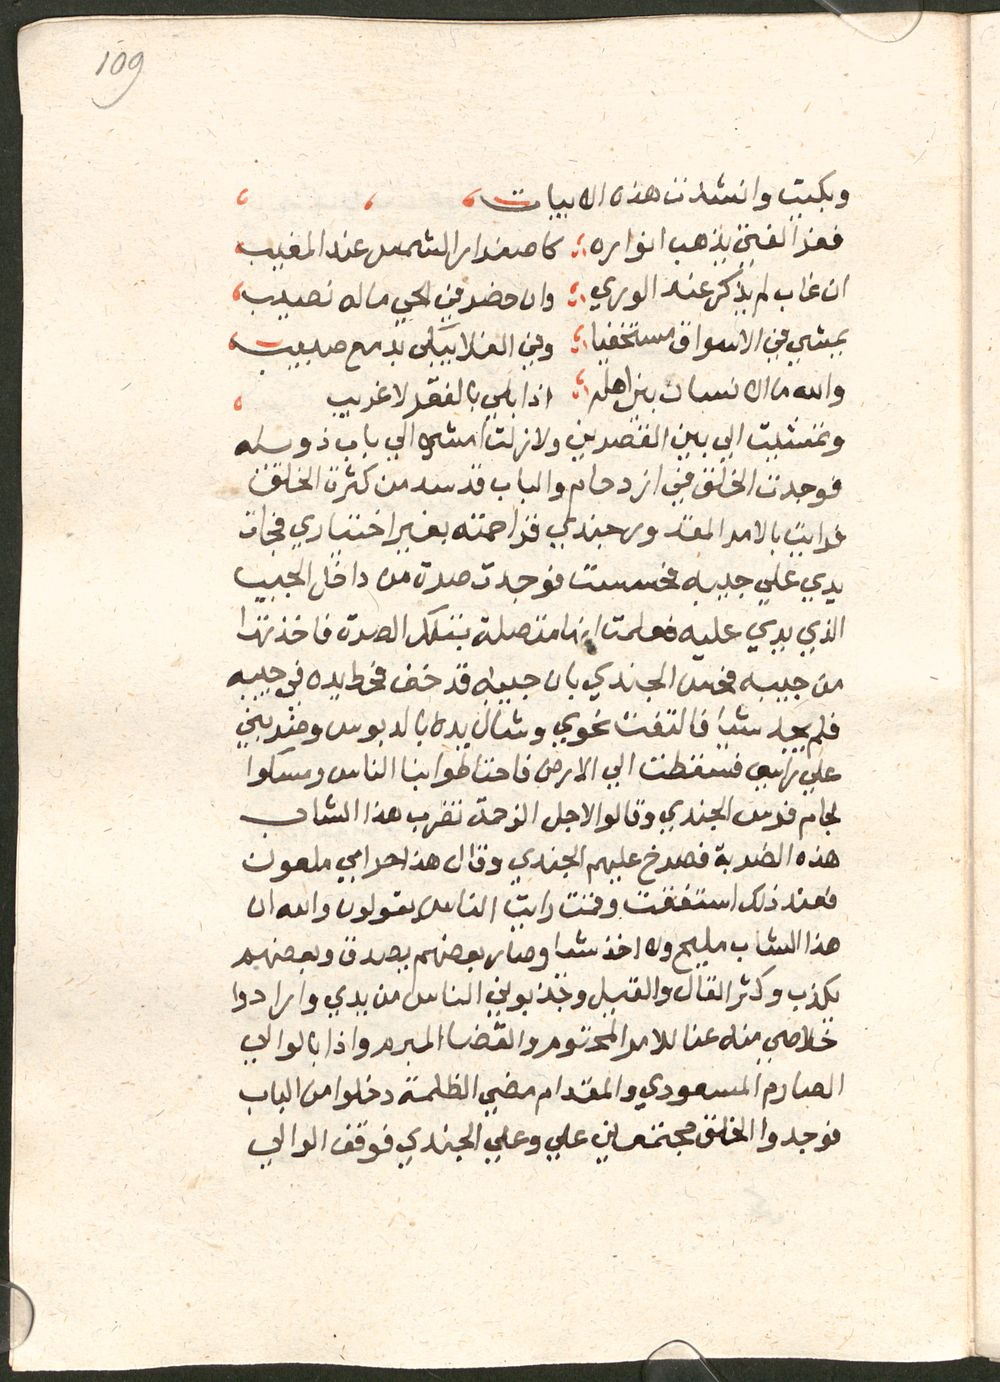 109
وبكيت وانشدت هذه الابيات
فقر الفتي يذهب انواره كاصفرار الشمس عند المغيب
ان غاب لم يذكر عند الوري وان حضر في الحي ماله نصيب
يمشي في الاسواق مستخفيا وفي الفلا يبكي بدمع صبيب
والله ما الانسان بين اهله اذا بلي بالفقر الا غريب
وتمشيت الي بين القصرين ولا زلت امشي الي باب زويله
فوجدت الخلق في ازدحام والباب قد سد من كثرة الخلق
فرايت بالامر المقدور جندي فزاحمته بغير اختياري فجات
يدي علي جيبه فحسست فوجدت صرة من داخل الجيب
الذي يدي عليه فعلمت انها متصلة بتلك الصرة فاخذتها
من جيبه فحس الجندي بان جيبه قد خف فحط يده في جيبه
فلم يجد شيا فالتفت نحوي وشال يده بالدبوس وضربني
علي راسي فسقطت الي الارض فاحتاطوا بنا الناس ومسكوا
لجام فرس الجندي وقالوا لاجل الزحمة تضرب هذا الشاب
هذه الضربة فصرخ عليهم الجندي وقال هذا حرامي ملعون
فعند ذلك استفقت وقمت رايت الناس يقولون والله ان
هذا الشاب مليح ولا اخذ شيا وصار بعضهم يصدق وبعضهم
يكذب وكثر القال والقيل وجذبوني الناس من يدي وارادوا
خلاصي منه عنا للامر المحتوم والقضا المبرم واذا بالوالي
الصارم المسعودي والمقدام مضي الظلمة دخلوا من الباب
فوجدوا الخلق مجتمعين علي وعلي الجندي فوقف الوالي